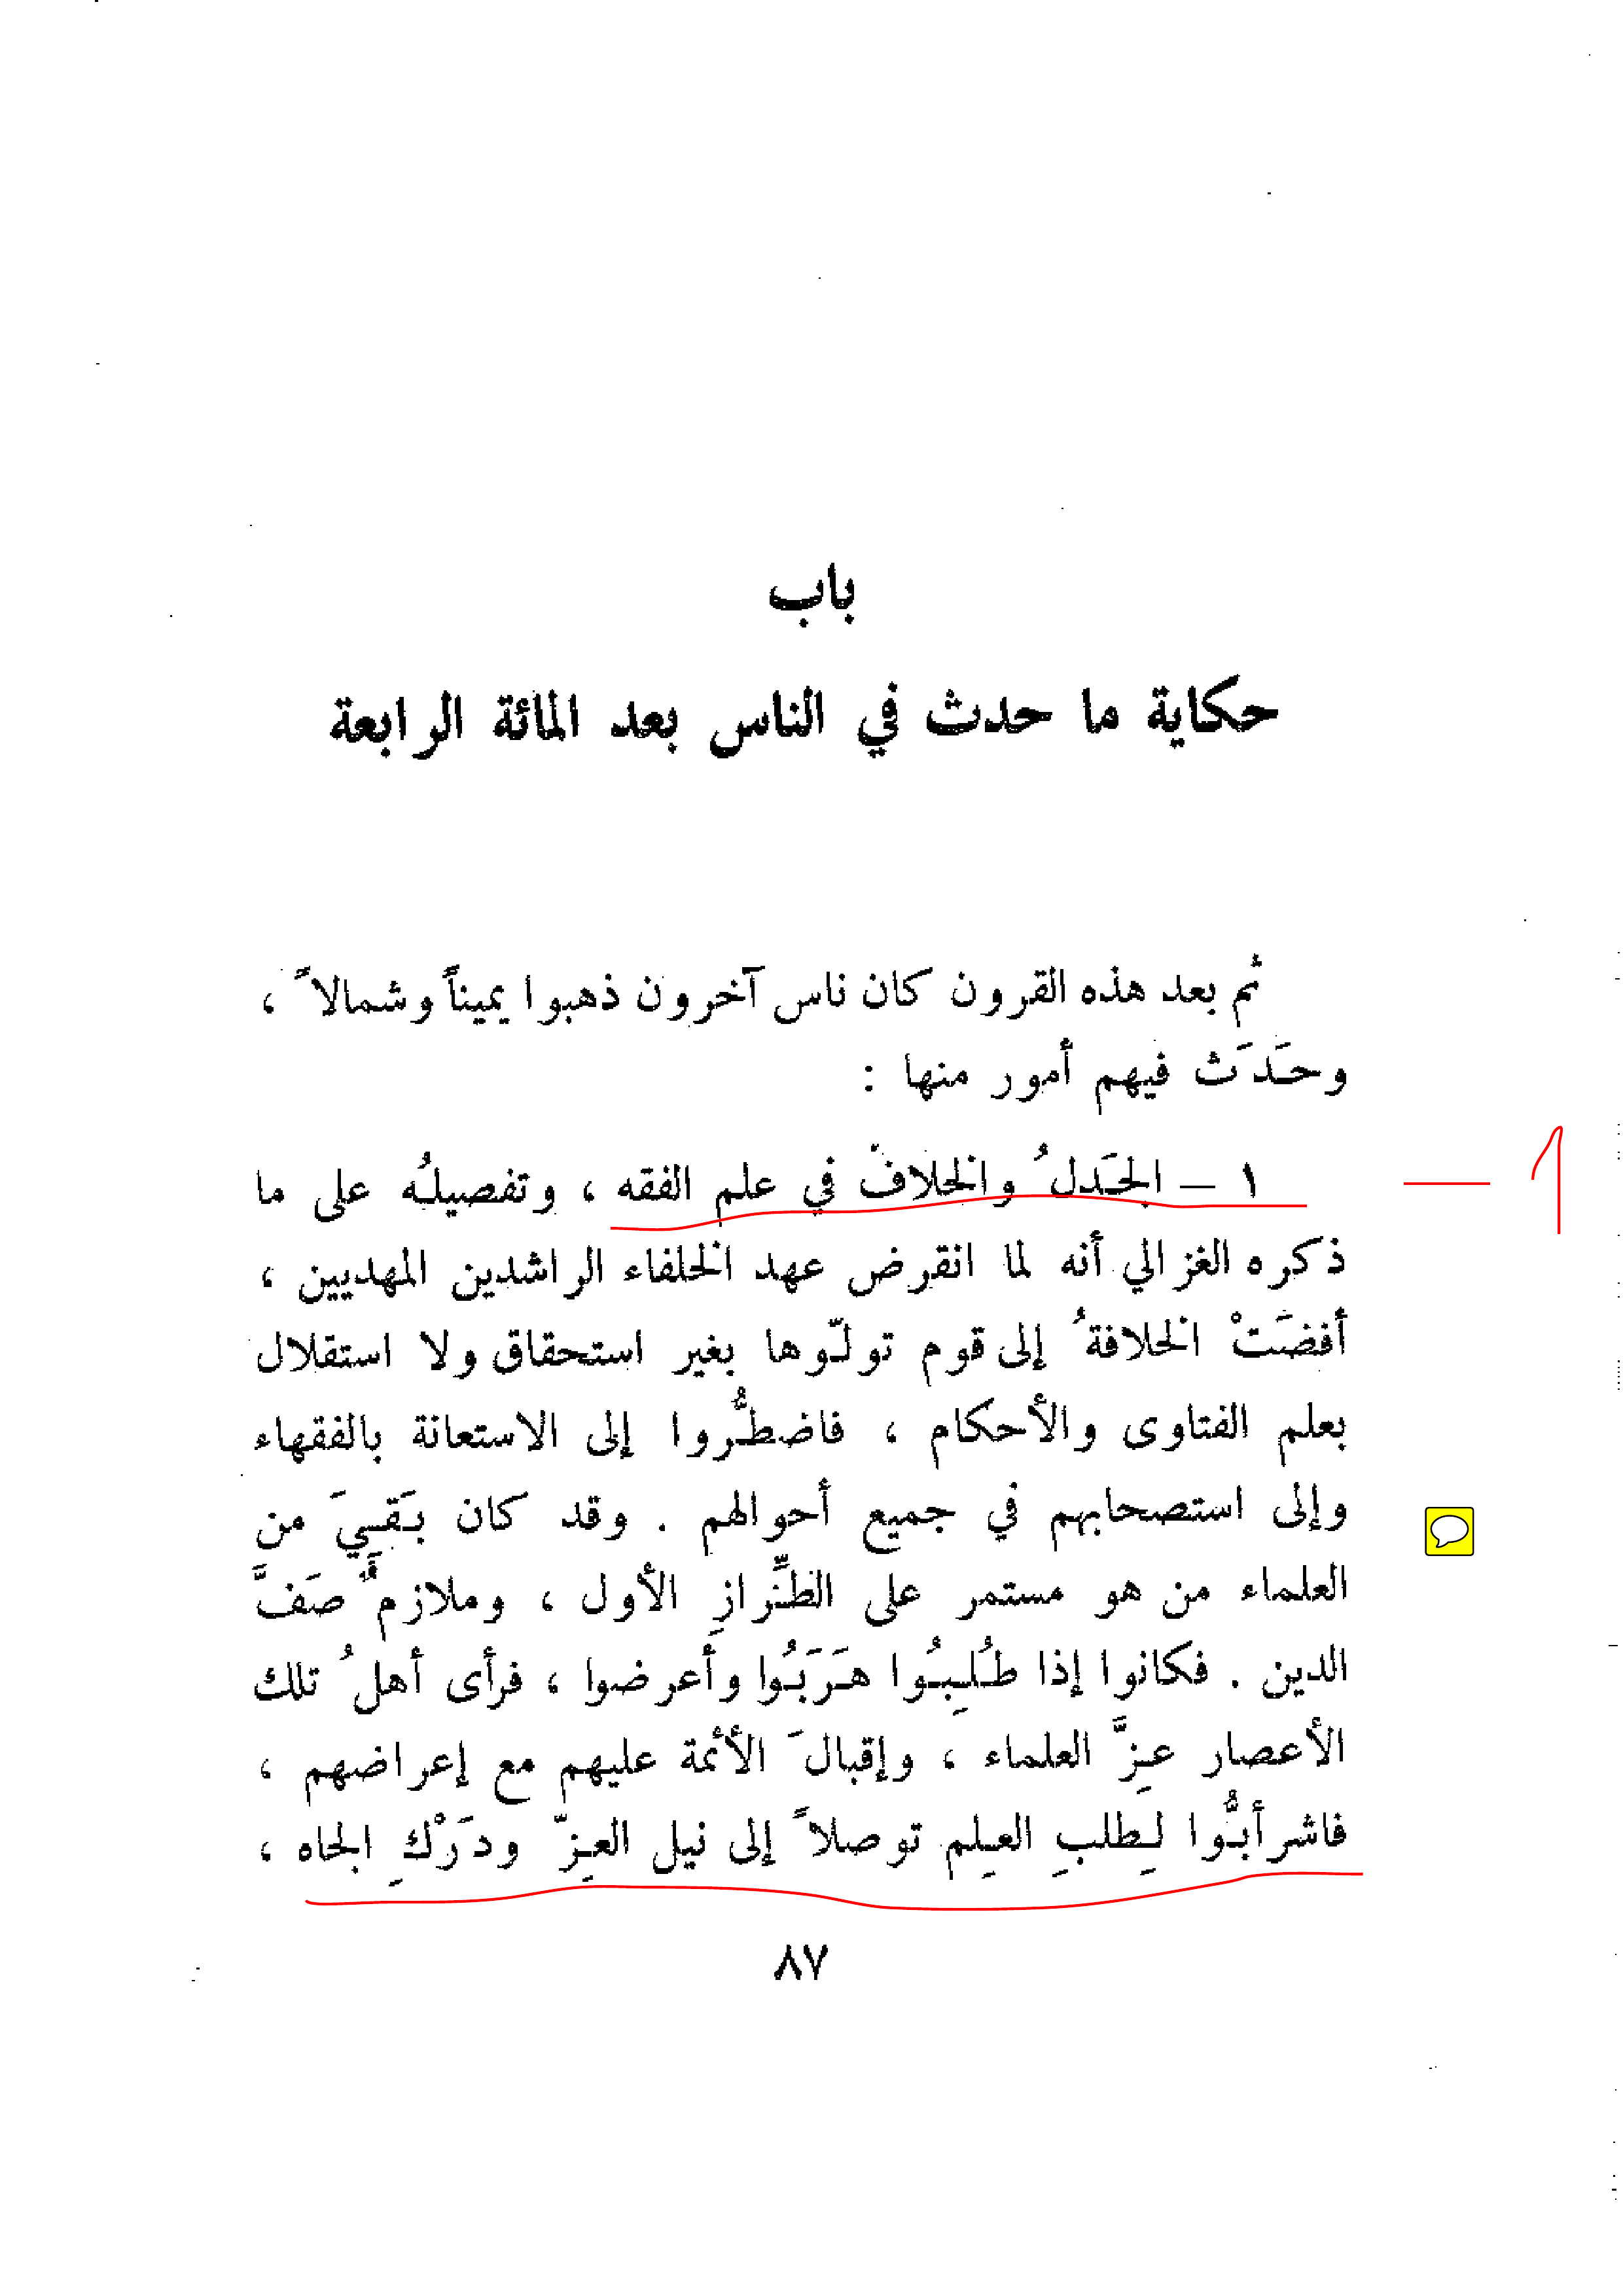 باب
حكاية ما حدث في الناس بعد المائة الرابعة
ثم بعد هذه القرون كان ناس آخرون ذهبوا يميناً وشمالاً ،
وحَدَث فيهم أمور منها :
١ – الجَدلُ والخلافُ في علم الفقه ، وتفصيلُه على ما
1 —
ذكره الغزالي أنه لما انقرض عهد الخلفاء الراشدين المهديين ،
أفضَتْ الخلافةُ إلى قوم تولّوها بغير استحقاق ولا استقلال
بعلم الفتاوى والأحكام ، فاضطُّروا إلى الاستعانة بالفقهاء
وإلى استصحابهم في جميع أحوالهم . وقد كان بَقيَ من
العلماء من هو مستمر على الطِّرازِ الأول ، وملازمٌ صَفَّ
الدين . فكانوا إذا طُلِبُوا هَرَبُوا وأعرضوا ، فرأى أهلُ تلك
الأعصار عِزَّ العلماء ، وإقبالَ الأئمة عليهم مع إعراضهم ،
فاشرأبُّوا لِطلبِ العِلم توصلاً إلى نيل العِزّ ودَرْكِ الجاه ،
٨٧